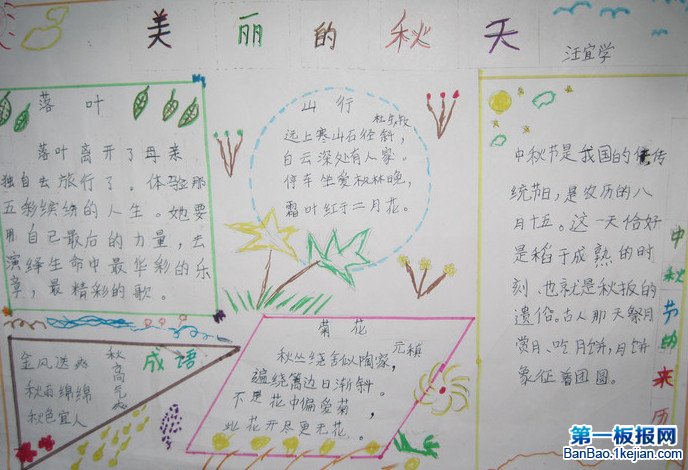 美丽的秋天
汪宜学
落叶
落叶离开了母亲
独自去旅行了。体验那
五彩缤纷的人生。她要
用自己最后的力量,去
演绎生命中最华彩的乐
章,最精彩的歌。
山行
杜牧
远上寒山石径斜,
白云深处有人家。
停车坐爱枫林晚,
霜叶红于二月花。
中秋节是我国的传
统节日,是农历的八
月十五。这一天恰好
是稻子成熟的时
刻、也就是秋报的
遗俗。古人那天祭月
赏月、吃月饼,月饼
象征着团圆。
中秋节的来历
成语
金风送爽
秋雨绵绵
秋色宜人
秋高气爽
菊花
元稹
秋丛绕舍似陶家,
遍绕篱边日渐斜。
不是花中偏爱菊,
此花开尽更无花。
第一板报网
BanBao.1kejian.com